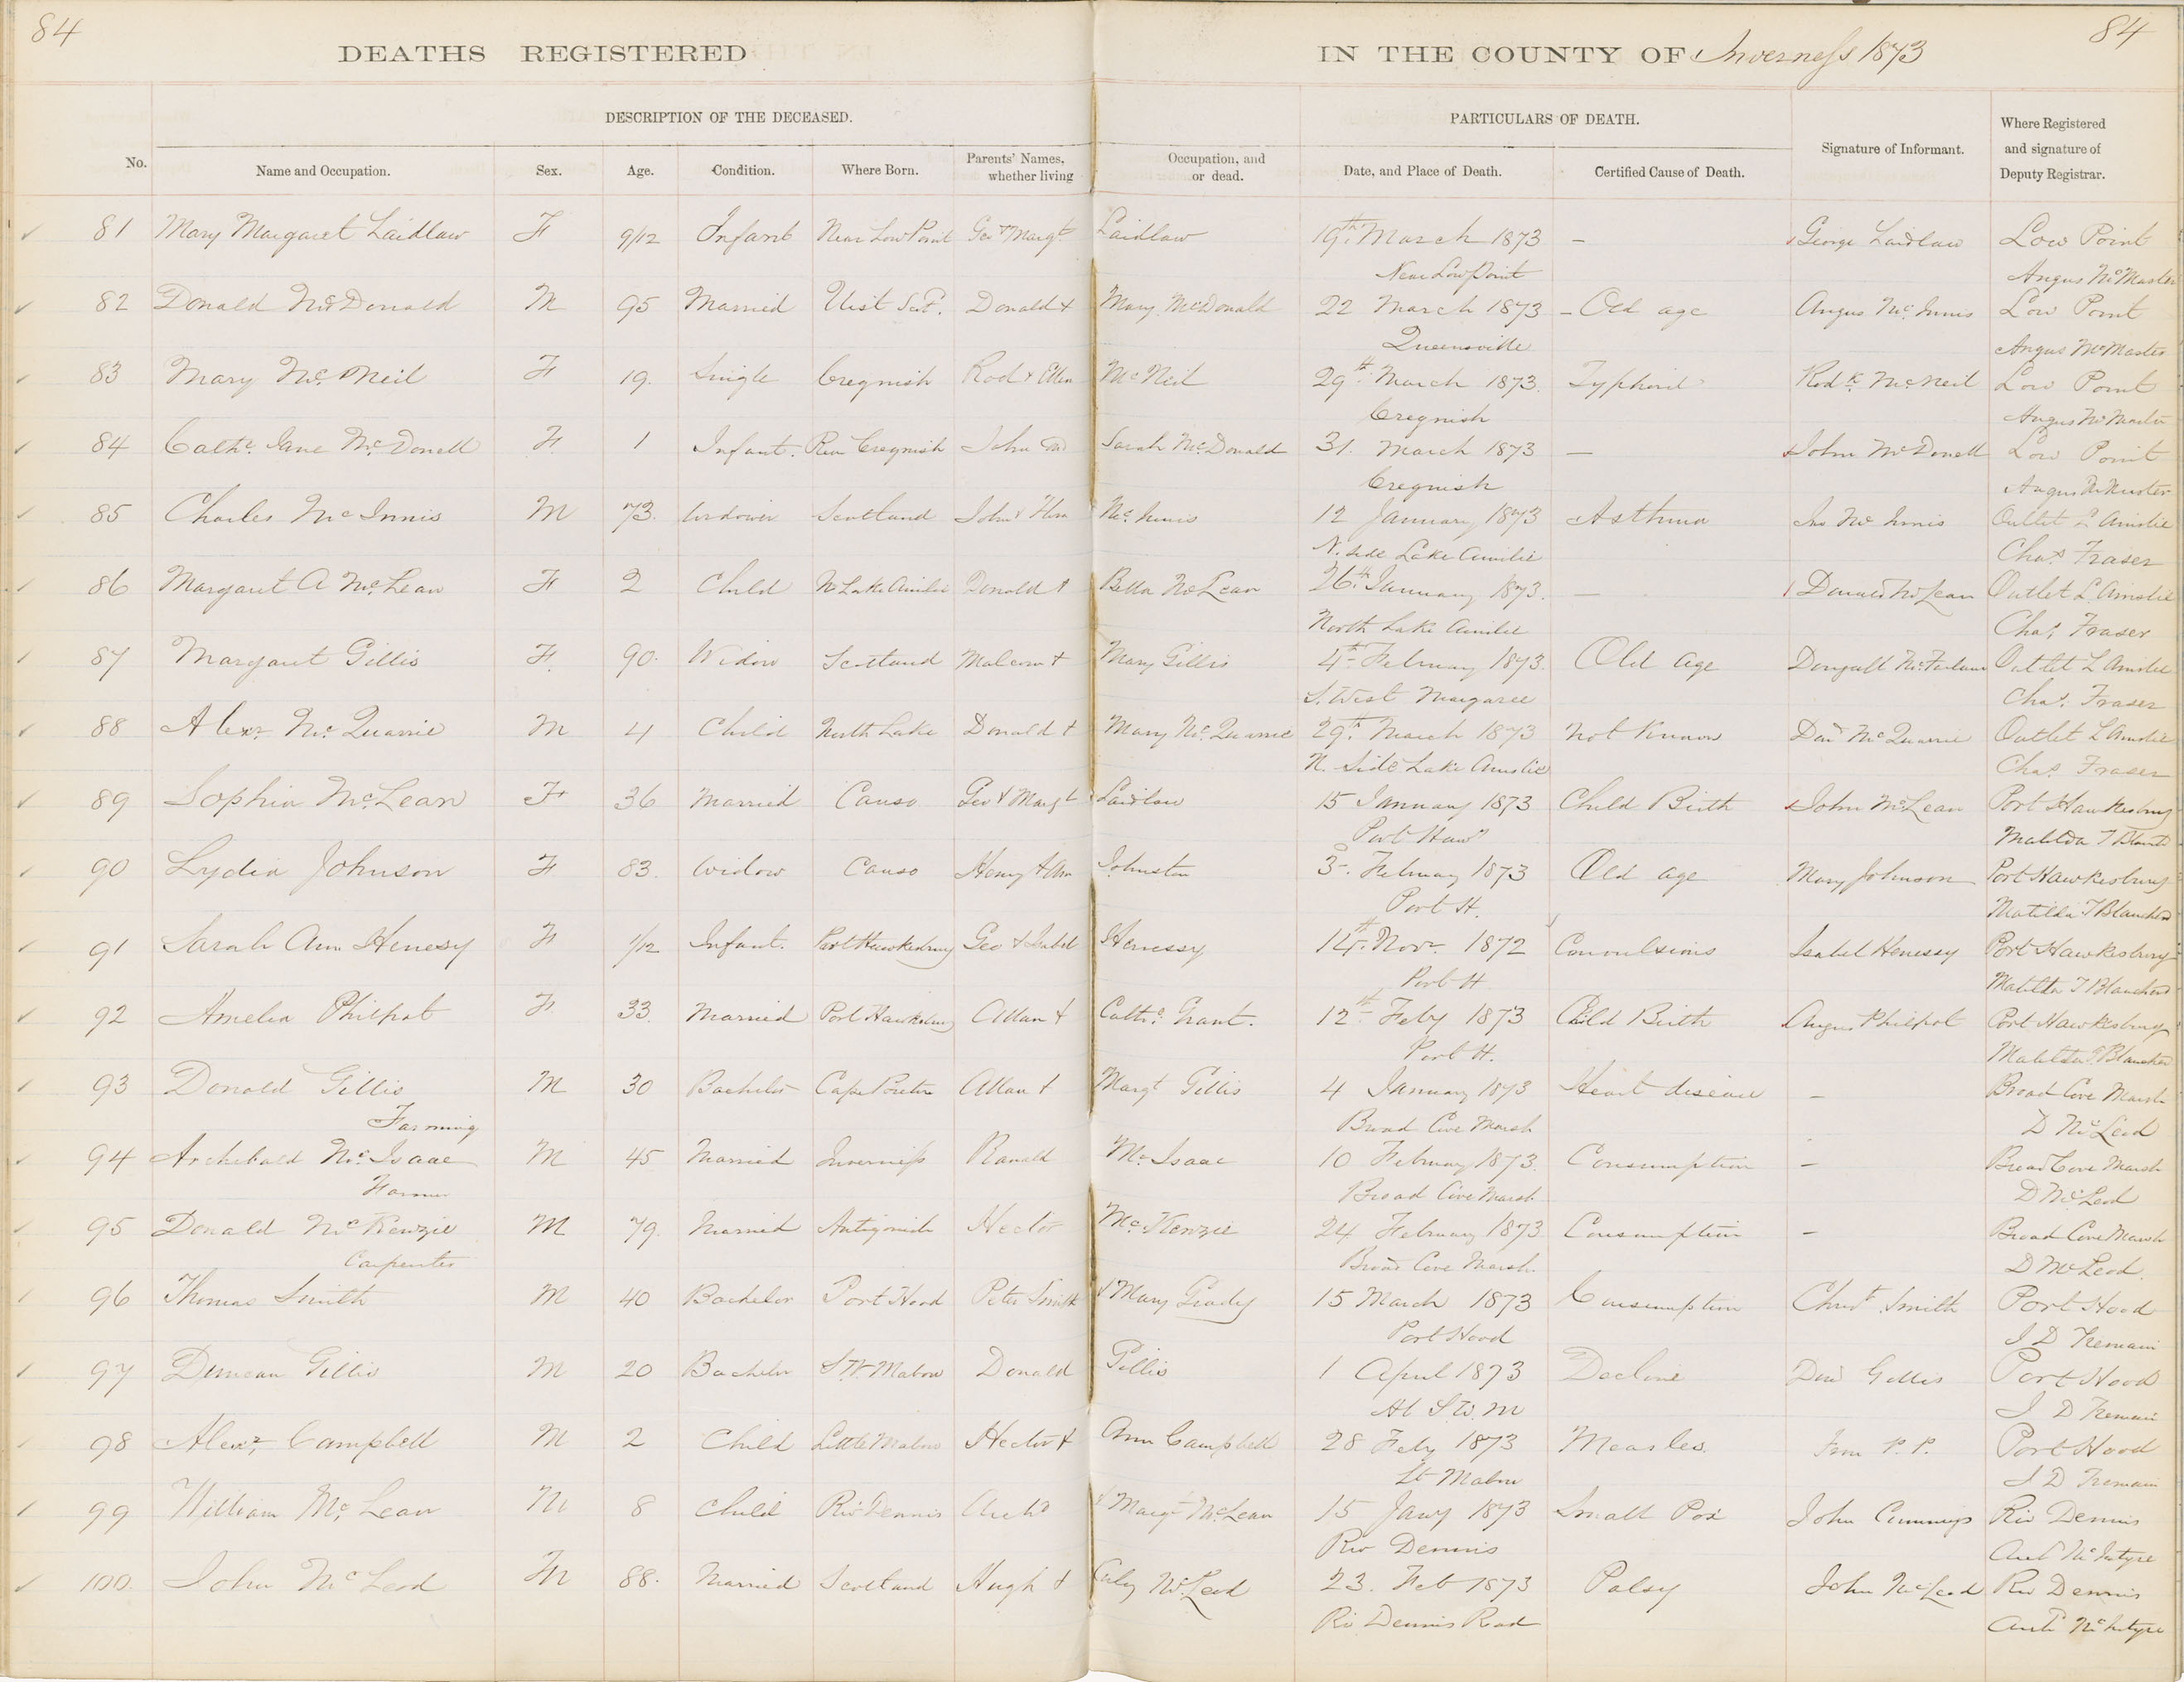 84
84
DEATHS REGISTERED IN THE COUNTY OF Inverness 1873
DESCRIPTION OF THE DECEASED. PARTICULARS OF DEATH.
No. Name and Occupation. Sex. Age. Condition. Where Born. Parents' Names, whether living Occupation, and or dead. Date, and Place of Death. Certified Cause of Death. Signature of Informant. Where Registered and signature of Deputy Registrar.
81 Mary Margaret Laidlaw F 9/12 Infant Near Low Point Geo & Margt Laidlaw 19th March 1873 – George Laidlaw Low Point
Near Low Point Angus McMaster
82 Donald McDonald M 95 Married Uist Scot. Donald & Mary McDonald 22 March 1873 – Old age Angus McInnis Low Point
Queensville Angus McMaster
83 Mary McNeil F 19. Single Creignish Rod & Ellen McNeil 29th March 1873. Typhoid Rodk McNeil Low Point
Creignish Angus McMaster
84 Cathe Jane McDonell F 1 Infant. Rear Creignish John Sarah McDonald 31. March 1873 – John McDonell Low Point
Creignish Angus McMaster
85 Charles McInnis M 73. Widower Scotland John & McInnis 12 January 1873 Asthma Jno McInnis Outlet L Ainslie
N. side Lake Ainslie Chas Fraser
86 Margaret A McLean F 2 Child N Lake Ainslie Donald & Bella McLean 26th January 1873. – Donald McLean Outlet L Ainslie
North Lake Ainslie Chas. Fraser
87 Margaret Gillis F. 90. Widow Scotland Malcom & Mary Gillis 4th February 1873. Old age Dougall McFarlane Outlet L Ainslie
S. West Margaree Chas. Fraser
88 Alexr McQuarrie M 4 Child North Lake Donald & Mary McQuarrie 29th March 1873 not Known Dond McQuarrie Outlet L Ainslie
N. Side Lake Ainslie Chas. Fraser
89 Sophia McLean F 36 Married Canso Geo & Margt Laidlaw 15 January 1873 Child Birth John McLean Port Hawkesbury
Port Haws Matilda T Blanchd
90 Lydia Johnson F 83. Widow Canso Henry & Ann Johnston 3. February 1873 Old age Mary Johnson Port Hawkesbury
Port H. Matilda T Blanchd
91 Sarah Ann Henesy F 1/12 Infant. Port Hawkesbury Geo & Isabel Henessy 14th Novr 1872 Convulsions Isabel Henessy Port Hawkesbury
Port H Matilda T Blanchd
92 Amelia Philpot F 33. Married Port Hawkesbury Allan & Cathe Grant. 12th Feby 1873 Child Birth Angus Philpot Port Hawkesbury
Port H. Matilda T Blanchd
93 Donald Gillis M 30 Bachelor Cape Breton Allan & Margt Gillis 4 January 1873 Heart disease – Broad Cove Marsh
Farming Broad Cove Marsh D McLeod
94 Archibald McIsaac M 45 Married Inverness Ranald McIsaac 10 February 1873. Consumption – Broad Cove Marsh
Farmer Broad Cove Marsh D McLeod
95 Donald McKenzie M 79. Married Antigonish Hector McKenzie 24 February 1873 Consumption – Broad Cove Marsh
Carpenter Broad Cove Marsh. D McLeod.
96 Thomas Smith M 40 Bachelor Port Hood Peter Smith & Mary Grady 15 March 1873 Consumption Christ. Smith Port Hood
Port Hood J D Tremain
97 Duncan Gillis M 20 Bachelor S.W. Mabou Donald Gillis 1 April 1873 Decline Dond Gillis Port Hood
At S.W. M J D Tremain
98 Alexr Campbell M 2 Child Little Mabou Hector & Ann Campbell 28 Feby 1873 Measles. From P. P. Port Hood
Lt Mabou J D Tremain
99 William McLean M 8 Child Riv Dennis Archd & Margt McLean 15 Jany 1873 Small Pox John Cummings Riv Dennis
Riv Dennis Archd McIntyre
100. John McLeod M 88. Married Scotland Hugh & McLeod 23. Feb 1873 Palsy John McLeod Riv Dennis
Ri Dennis Road Archd McIntyre